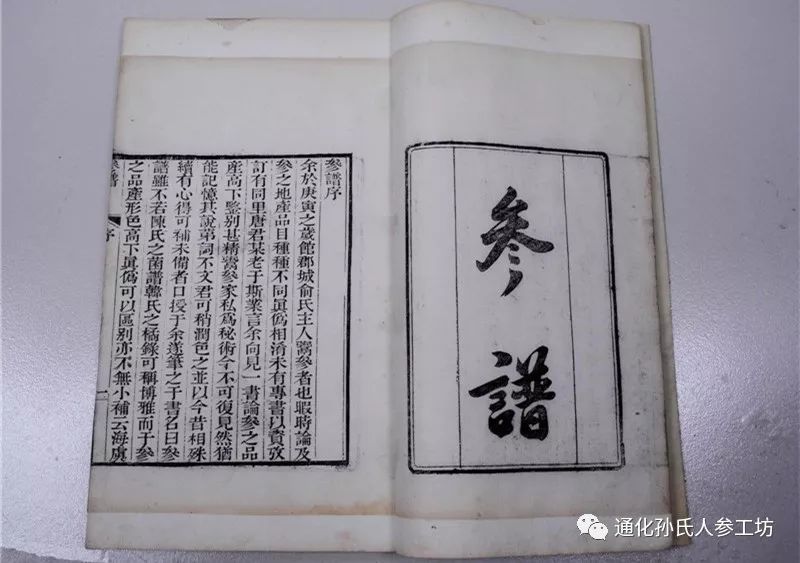 參譜
參譜序
余於庚寅之歲館郡城俞氏主人鬻參者也暇時論及
參之地產品目種種不同眞僞相淆未有專書以資攷
訂有同里唐君某老于斯業言余向見一書論參之品
產高下鑒别甚精賣參家私爲秘術今不可復見然猶
能記憶其説第詞不文君可稍潤色之並以今昔相殊
續有心得可補未備者口授于余遂筆之于書名曰參
譜雖不若陳氏之菌譜韓氏之橘錄可稱博雅而于參
之品產形色高下眞僞可以區别亦不無小補云海虞
參譜
序
一
通化孙氏人参工坊